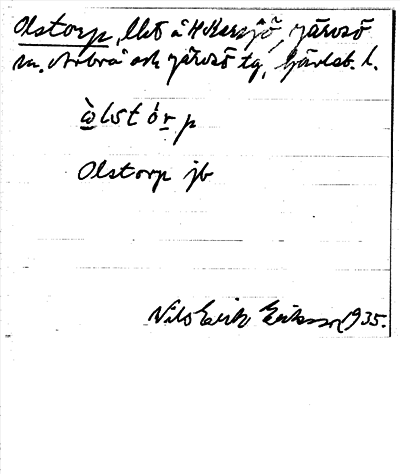 Olstorp, lht å Karsjö, Järvsö
sn. Arbrå och Järvsö tg, Gävleb. l.
ὼlstórp
Olstorp jb
Nils Erik Eriksson 1935.